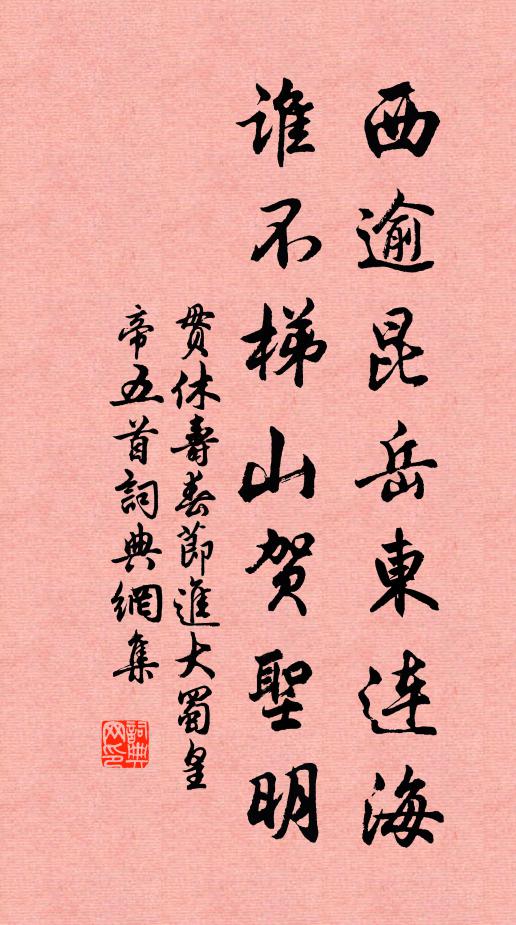 西逾昆岳東连海
谁不梯山贺聖明
贯休壽春節進大蜀皇
帝五首詞典網集
詞典
网印